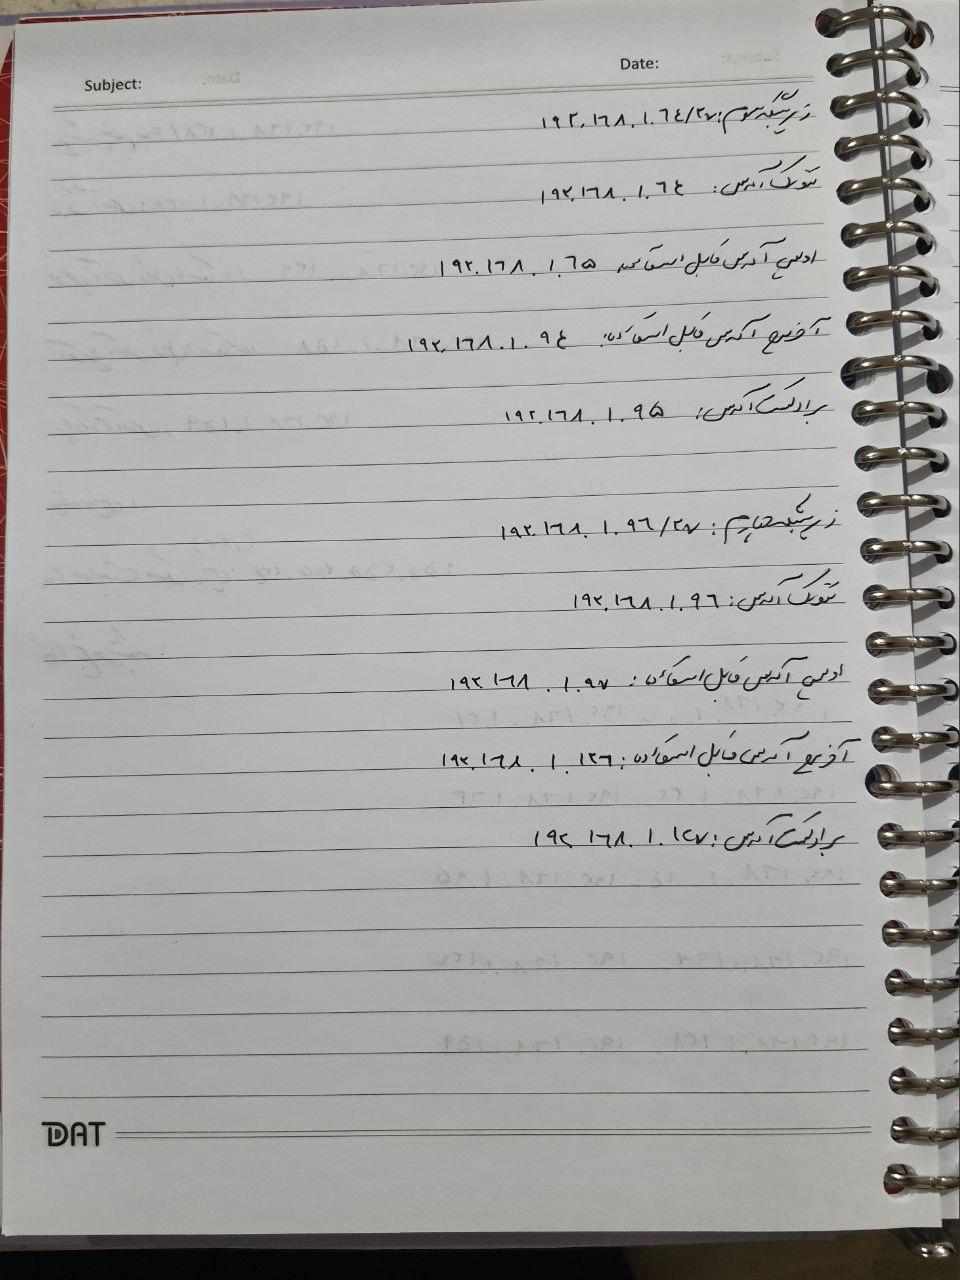 Subject:
Date:
زیرشبکه سوم: ۱۹۲.۱۶۸.۱.۶۴/۲۷
نتورک آدرس: ۱۹۲.۱۶۸.۱.۶۴
اولین آدرس قابل استفاده ۱۹۲.۱۶۸.۱.۶۵
آخرین آدرس قابل استفاده: ۱۹۲.۱۶۸.۱.۹۴
برادکست آدرس: ۱۹۲.۱۶۸.۱.۹۵
زیرشبکه چهارم: ۱۹۲.۱۶۸.۱.۹۶/۲۷
نتورک آدرس: ۱۹۲.۱۶۸.۱.۹۶
اولین آدرس قابل استفاده: ۱۹۲.۱۶۸.۱.۹۷
آخرین آدرس قابل استفاده: ۱۹۲.۱۶۸.۱.۱۲۶
برادکست آدرس: ۱۹۲.۱۶۸.۱.۱۲۷
DAT